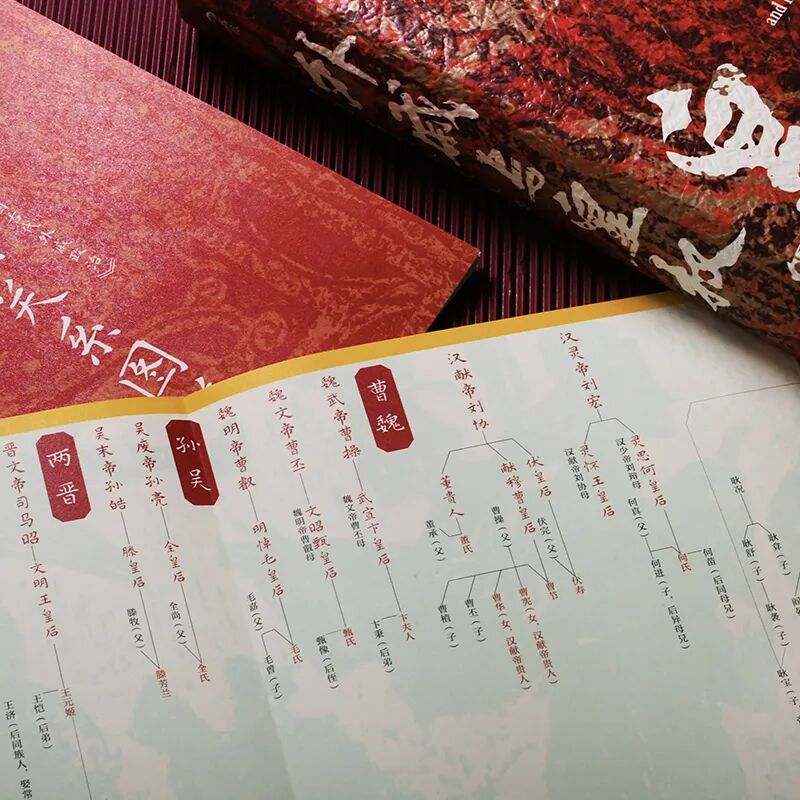 外戚与皇权
and
古代外戚政治》
关系图
汉灵帝刘宏
灵思何皇后
汉少帝刘辩母
何真（父）
何氏
何进（子，后异母兄）
何苗（后同母兄）
灵怀王皇后
汉献帝刘协母
耿况
耿舒（子）
耿弇（子）
耿袭（子）
耿宝（子）
汉献帝刘协
伏皇后
伏完（父）
伏寿
献穆曹皇后
曹操（父）
曹节
曹宪（女，汉献帝贵人）
曹华（女，汉献帝贵人）
曹丕（子）
曹植（子）
董贵人
董承（父）
董氏
曹魏
魏武帝曹操
武宣卞皇后
魏文帝曹丕母
卞夫人
卞秉（后弟）
魏文帝曹丕
文昭甄皇后
魏明帝曹叡母
甄氏
甄像（后侄）
魏明帝曹叡
明悼毛皇后
毛嘉（父）
毛氏
毛曾（子）
孙吴
吴废帝孙亮
全皇后
全尚（父）
全氏
吴末帝孙皓
滕皇后
滕牧（父）
滕芳兰
两晋
晋文帝司马昭
文明王皇后
王元姬
王恺（后弟）
王济（后同族人，娶常